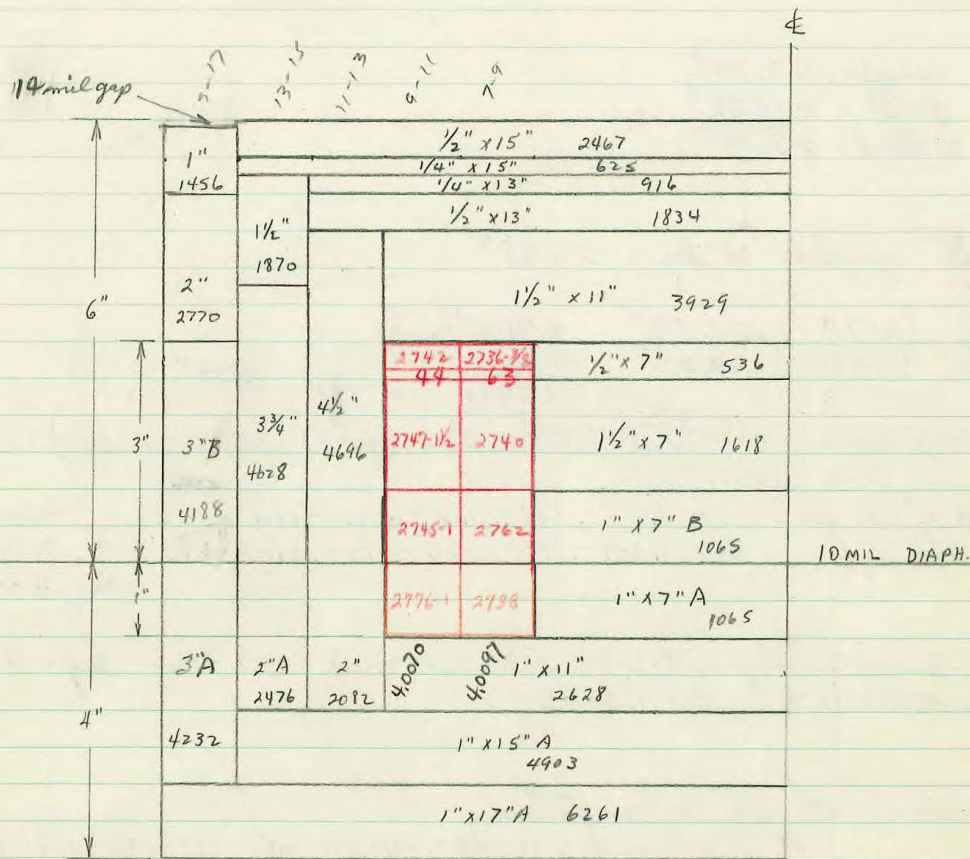 ℄
114 mil gap
13-15
11-13
9-11
7-9
1/2" x 15" 2467
1/4" x 15" 625
1/4" x 13" 916
1/2" x 13" 1834
1"
1456
1 1/2"
1870
2"
2770
6"
1 1/2" x 11" 3929
2742 2736-3/8
44 63
1/2" x 7" 536
4 1/2"
4696
3 3/4"
4628
3"
3"B
4188
2747-1 1/2 2740
1 1/2" x 7" 1618
2745-1 2762
1" x 7" B
1065
10 MIL DIAPH.
1"
2776-1 2738
1" x 7" A
1065
3"A
4232
2"A
2476
2"
2082
4.0070
4.0097
1" x 11"
2628
4"
1" x 15" A
4903
1" x 17" A 6261